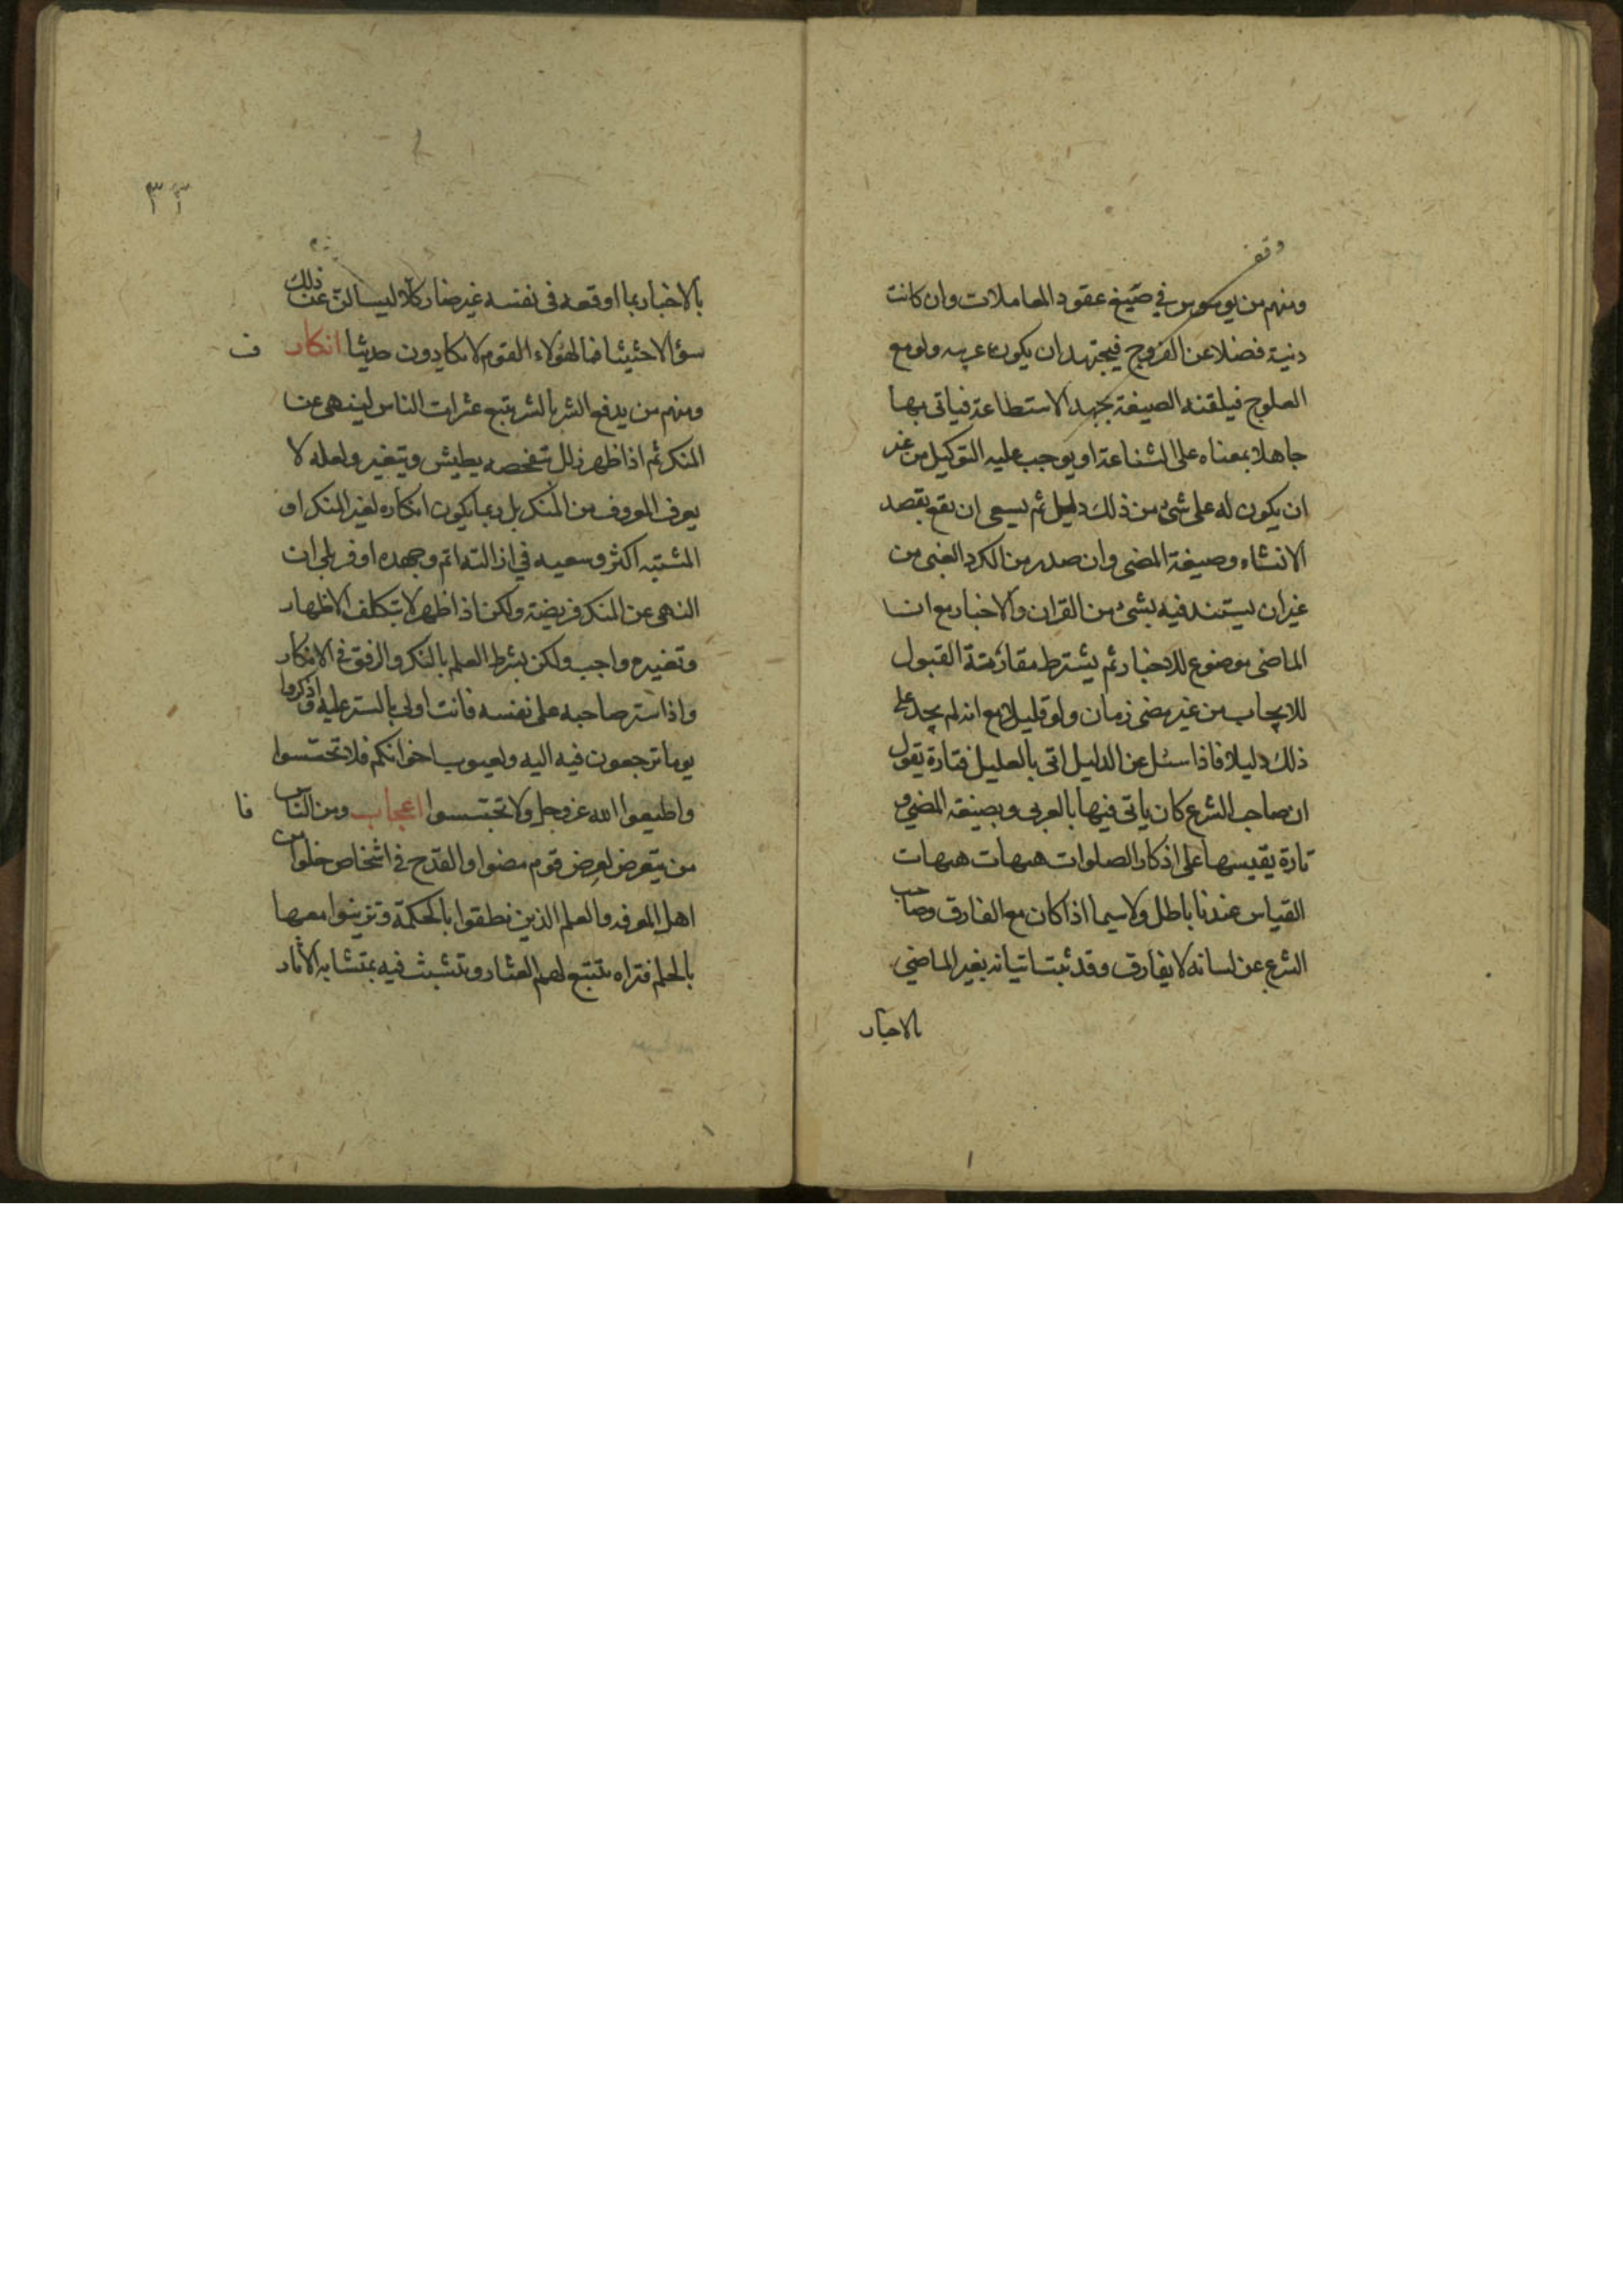 وقف
ومنهم من يوسوس في صيغ عقود المعاملات وان كانت
دنية فضلا عن الفروج فيجتهد ان يكون عربيه ولو مع
العلوج فيلقنه الصيغة بجهد الاستطاعة فياتى بها
جاهلا بمعناه على الشناعة او يوجب عليه التوكيل من غير
ان يكون له على شئ من ذلك دليل ثم يسعى ان يقع بقصد
الانشاء وصيغة المضى وان صدر من الكرد الغبى من
غير ان يستند فيه بشئ من القران والاخبار مع ان
الماضى موضوع للاخبار ثم يشترط مقارنة القبول
للايجاب من غير مضى زمان ولو قليلا مع انه لم يجد على
ذلك دليلا فاذا سئل عن الدليل اتى بالعليل فتارة يقول
ان صاحب الشرع كان ياتى فيها بالعربى وبصيغة المضي و
تارة يقيسها على اذكار الصلوات هيهات هيهات
القياس عندنا باطل ولا سيما اذا كان مع الفارق وصاحب
الشرع عن لسانه لا يفارق وقد ثبت اتيانه بغير الماضي
بالاخبار
٣٣
بالاخبار بما اوقعه فى نفسه غير ضار كلا ليسالن عن ذلك
سؤالا حثيثا فما لهؤلاء القوم لا يكادون حديثا انكار
ف
ومنهم من يدفع الشر بالشر يتبع عثرات الناس لينهى عن
المنكر ثم اذا ظهر زلل شخصه يطيش ويتغير ولعله لا
يعرف المعروف من المنكر بل ربما يكون انكاره لغير المنكر او
المشتبه اكثر وسعيه في ازالته اتم وجهده اوفر بلى ان
النهى عن المنكر فريضة ولكن اذا ظهر لا بتكلف الاظهار
وتغييره واجب ولكن بشرط العلم بالنكر والرفق فى الانكار
واذا ستر صاحبه على نفسه فانت اولى بالستر عليه واذكروا
يوما ترجعون فيه اليه ولعيوب اخوانكم فلا تحتسوا
واطيعوا الله عز وجل ولا تجسسوا اعجاب ومن الناس
فا
من يتعرض لعرض قوم مضوا والقدح فى اشخاص خلوا من
اهل المعرفه والعلم الذين نطقوا بالحكمة وتزينوا معها
بالحلم فتراه يتتبع لهم العثار وتشبث فيه بمتشابه الاثار